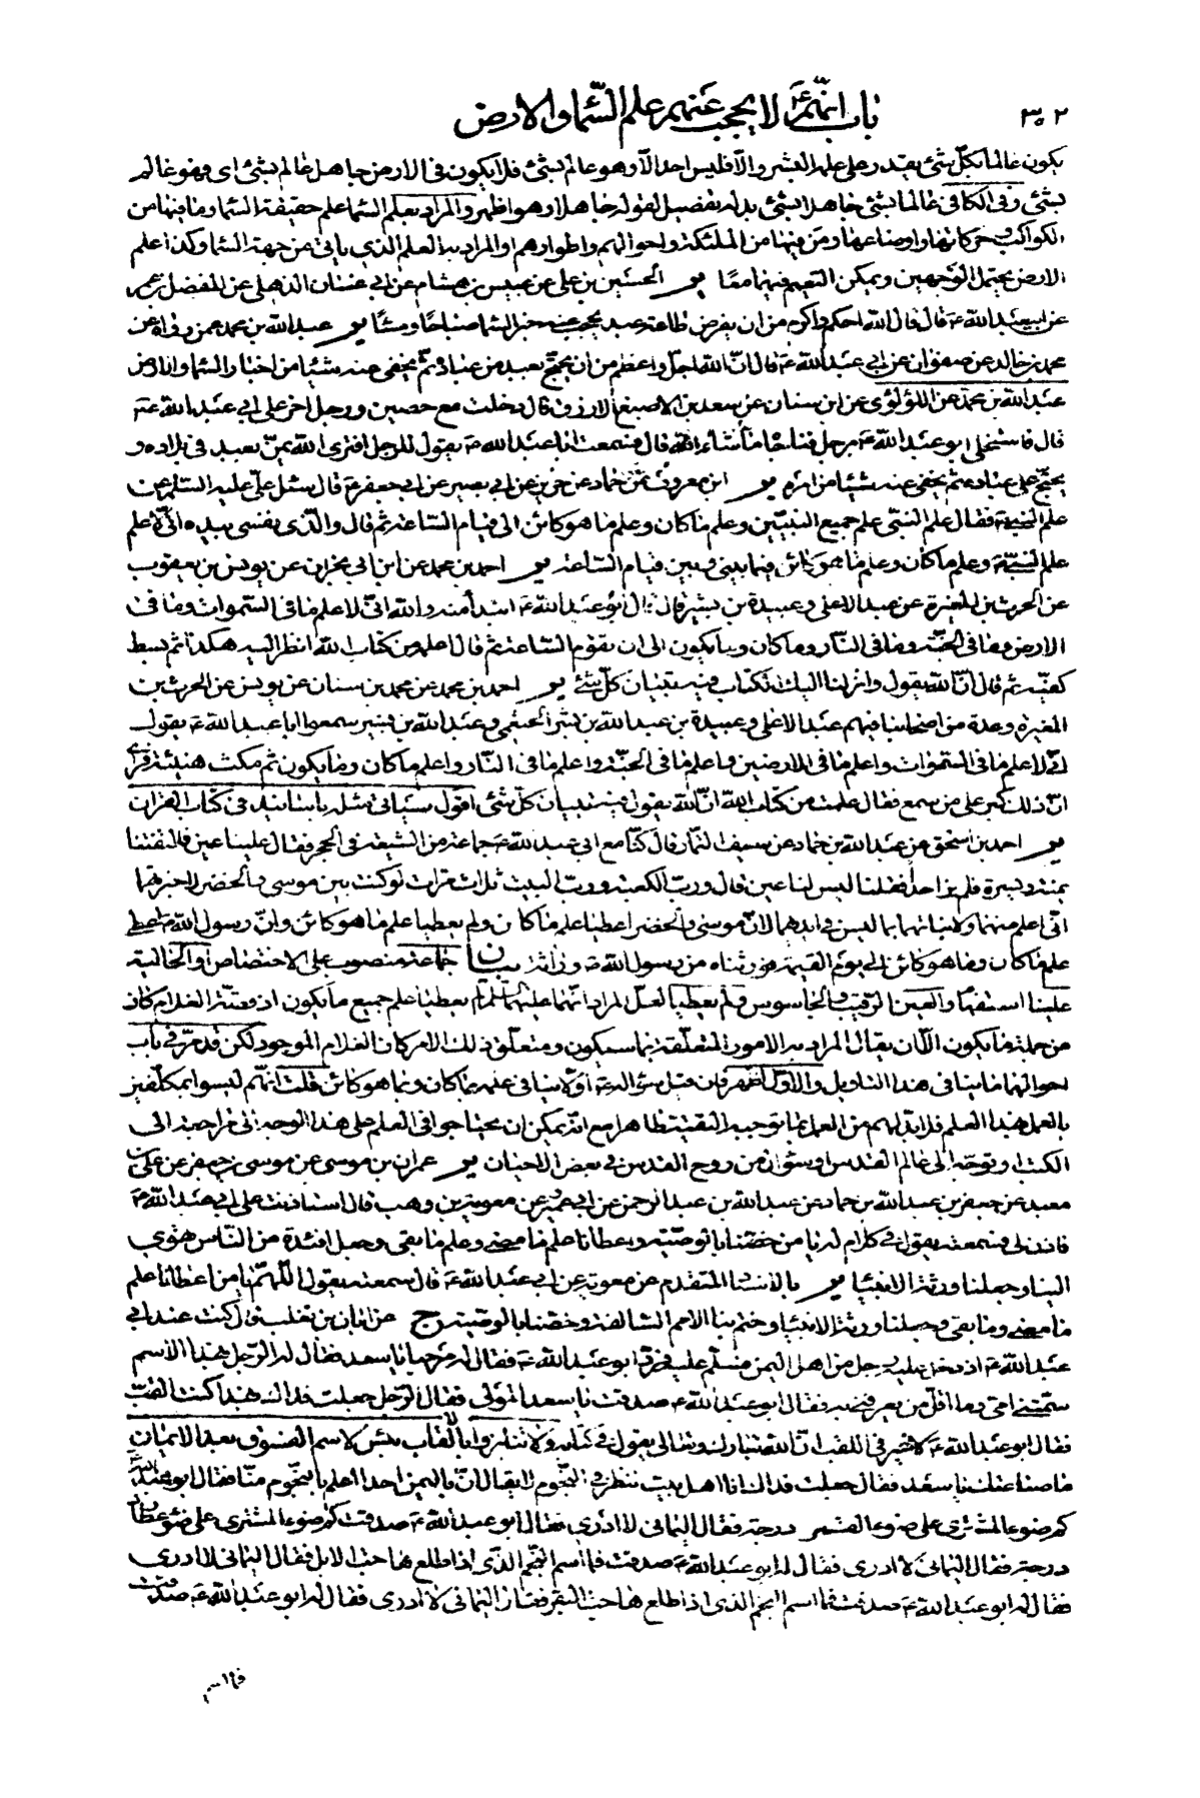 ٣٠٢ باب انّهم ع لا يحجب عنهم علم السّماء والارض
يكون عالما بكلّ شئ يقدر على علمه البشر والّا فليس احد الّا وهو عالم بشئ فلا يكون في الارض جاهل عالم بشئ اى فهو عالم
بشئ وفي الكافي عالما بشئ جاهلا بشئ بدله تفصيل لقوله جاهلا وهو اظهر والمراد بعلم السّماء علم حقيقة السّماء وما فيها من
الكواكب وحركاتها واوضاعها ومن فيها من الملئكة واحوالهم واطوارهم او المراد به العلم الذي ياتي من جهة السّماء وكذا علم
الارض يحتمل الوجهين ويمكن التعميم فيهما معًا ير الحسين بن علي عن عبيس بن هشام عن ابي غسّان الذهلي عن المفضل بن عمر
عن ابيعبدالله ع قال قال الله احكم واكرم من ان يفرض طاعة عبد يحجب عنه خبر السّماء صباحًا ومساءً ير عبدالله بن محمد عمن رواه عن
محمد بن خالد عن صفوان عن ابي عبدالله ع قال انّ الله اجلّ واعظم من ان يحتجّ بعبد من عباده ثمّ يخفى عنه شيئا من اخبار السّماء والارض
عبدالله بن محمد عن اللؤلؤى عن ابن سنان عن سعد بن الاصبغ الازرق قال دخلت مع حصين ورجل اخر على ابي عبدالله ع
قال فاستخلى ابو عبدالله ع برجل فناجاه ما شاء الله قال فسمعت ابا عبدالله ع يقول للرجل افترى الله يمنّ بعبد في بلاده و
يحتجّ على عباده ثم يخفى عنه شيئا من امره ير ابن معروف عن حماد عن حريز عن ابي بصير عن ابي جعفر ع قال سئل علىّ عليه السّلم عن
علم النبي ص فقال علم النبّى علم جميع النبيّين وعلم ما كان وعلم ما هو كائن الى قيام السّاعة ثم قال والّذى نفسى بيده انّى لاعلم
علم النبيّ ص وعلم ما كان وعلم ما هو كائن فيما بينى وبين قيام السّاعة ير احمد بن محمد عن ابن ابي نجران عن يونس بن يعقوب
عن الحرث بن المغيرة عن عبد الاعلى وعبيدة بن بشير قال قال ابو عبدالله ع ابتداً منه والله انّى لاعلم ما في السّموات وما في
الارض وما في الجنّة وما في النّار وما كان وما يكون الى ان تقوم السّاعة ثم قال اعلمه من كتاب الله انظر اليه هكذا ثم بسط
كفيّه ثم قال انّ الله يقول وانزلنا اليك الكتاب فيه تبيان كلّ شئ ير احمد بن محمد عن محمد بن سنان عن يونس عن الحرث بن
المغيرة وعدة من اصحابنا فيهم عبد الاعلى وعبيدة بن عبدالله بن بشر الخثعمي وعبدالله بن بشير سمعوا ابا عبدالله ع يقول
انّى لاعلم ما في السّموات واعلم ما في الارضين واعلم ما في الجنّة واعلم ما في النّار واعلم ما كان وما يكون ثم مكث هنيئة فرأى
انّ ذلك كبر على من سمعه فقال علمت من كتاب الله انّ الله يقول فيه تبيان كلّ شئ اقول سيأتي مثله باسانيد في كتاب القران
ير احمد بن اسحق عن عبدالله بن حماد عن سيف التمار قال كنّا مع ابي عبدالله ع جماعة من الشيعة في الحجر فقال علينا عين فالتفتنا
يمنة ويسرة فلم نر احدا فقلنا ليس لنا عين قال وربّ الكعبة وربّ البيت ثلاث مرات لو كنت بين موسى والخضر لاخبرتهما
انّى اعلم منهما ولانبأتهما بما ليس في ايديهما لانّ موسى والخضر اعطيا علم ما كان ولم يعطيا علم ما هو كائن وانّ رسول الله ص اعطى
علم ما كان وما هو كائن الى يوم القيمة فورثناه من رسول الله ص وراثة بيان جماعة منصوب على الاختصاص او الحالية
علينا استفهام والعين الرقيب والجاسوس ولم يعطيا لعلّ المراد انّهما عليهما السلم لم يعطيا علم جميع ما يكون اذ قصّة الغلام كان
من جملة ما يكون الّا ان يقال المراد به الامور المتعلقة بما سيكون ومتعلّق ذلك الامر كان الغلام الموجود لكن قد مرّ في باب
احوالهما ما ينافى هذا التاويل والاول اظهر فان قيل سؤاله ع اوّلا ينافى علمه بما كان وبما هو كائن قلت انّهم ليسوا بمكلّفين
بالعمل بهذا العلم فلا بدّ لهم من العمل بما توجبه التقيّة ظاهرا مع انّه يمكن ان يحتاجوا في العلم على هذا الوجه الى مراجعة الى
الكتب او توجّه الى عالم القدس او سؤال من روح القدس في بعض الاحيان ير عمران بن موسى عن موسى بن جعفر عن على بن
معبد عن جعفر بن عبدالله بن حماد عن عبدالله بن عبد الرحمن عن ابي عمير عن معوية بن وهب قال استاذنت على ابي عبدالله ع
فاذن لي فسمعته يقول في كلام له يا من خصّنا بالوصيّة واعطانا علم ما مضى وعلم ما بقى وجعل افئدة من النّاس تهوي
الينا وجعلنا ورثة الانبياء ير بالاسناد المتقدم عن معوية عن ابي عبدالله ع قال سمعته يقول اللّهمّ يا من اعطانا علم
ما مضى وما بقى وجعلنا ورثة الانبياء وختم بنا الامم السّالفة وخصّنا بالوصيّة ج عن ابان بن تغلب قال كنت عند ابي
عبدالله ع اذ دخل عليه رجل من اهل اليمن فسلّم عليه فردّ ابو عبدالله ع فقال له مرحبا يا سعد فقال له الرّجل بهذا الاسم
سمّتنى امّي وما اقلّ من يعرفنى به فقال ابو عبدالله ع صدقت يا سعد المولى فقال الرّجل جعلت فداك بهذا كنت القب
فقال ابو عبدالله ع لا خير في اللقب انّ الله تبارك وتعالى يقول في كتابه ولا تنابزوا بالالقاب بئس الاسم الفسوق بعد الايمان
ما صناعتك يا سعد فقال جعلت فداك انا اهل بيت ننظر في النّجوم لا يقال انّ باليمن احدا اعلم بالنّجوم منّا فقال ابو عبدالله
كم ضوء المشترى على ضوء القمر درجة فقال اليمانى لا ادرى فقال ابو عبدالله ع صدقت كم ضوء المشترى على ضوء عطارد
درجة فقال اليمانى لا ادرى فقال له ابو عبدالله ع صدقت فما اسم النّجم الّذى اذا طلع هاجت الابل فقال اليمانى لا ادرى
فقال له ابو عبدالله ع صدقت فما اسم النجم الذى اذا طلع هاجت البقر فقال اليمانى لا ادرى فقال له ابو عبدالله ع صدقت